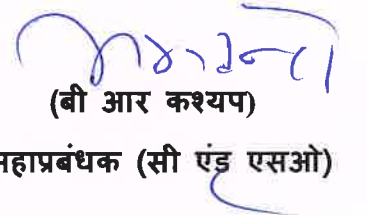 (बी आर कश्यप)
महाप्रबंधक (सी एंड एसओ)